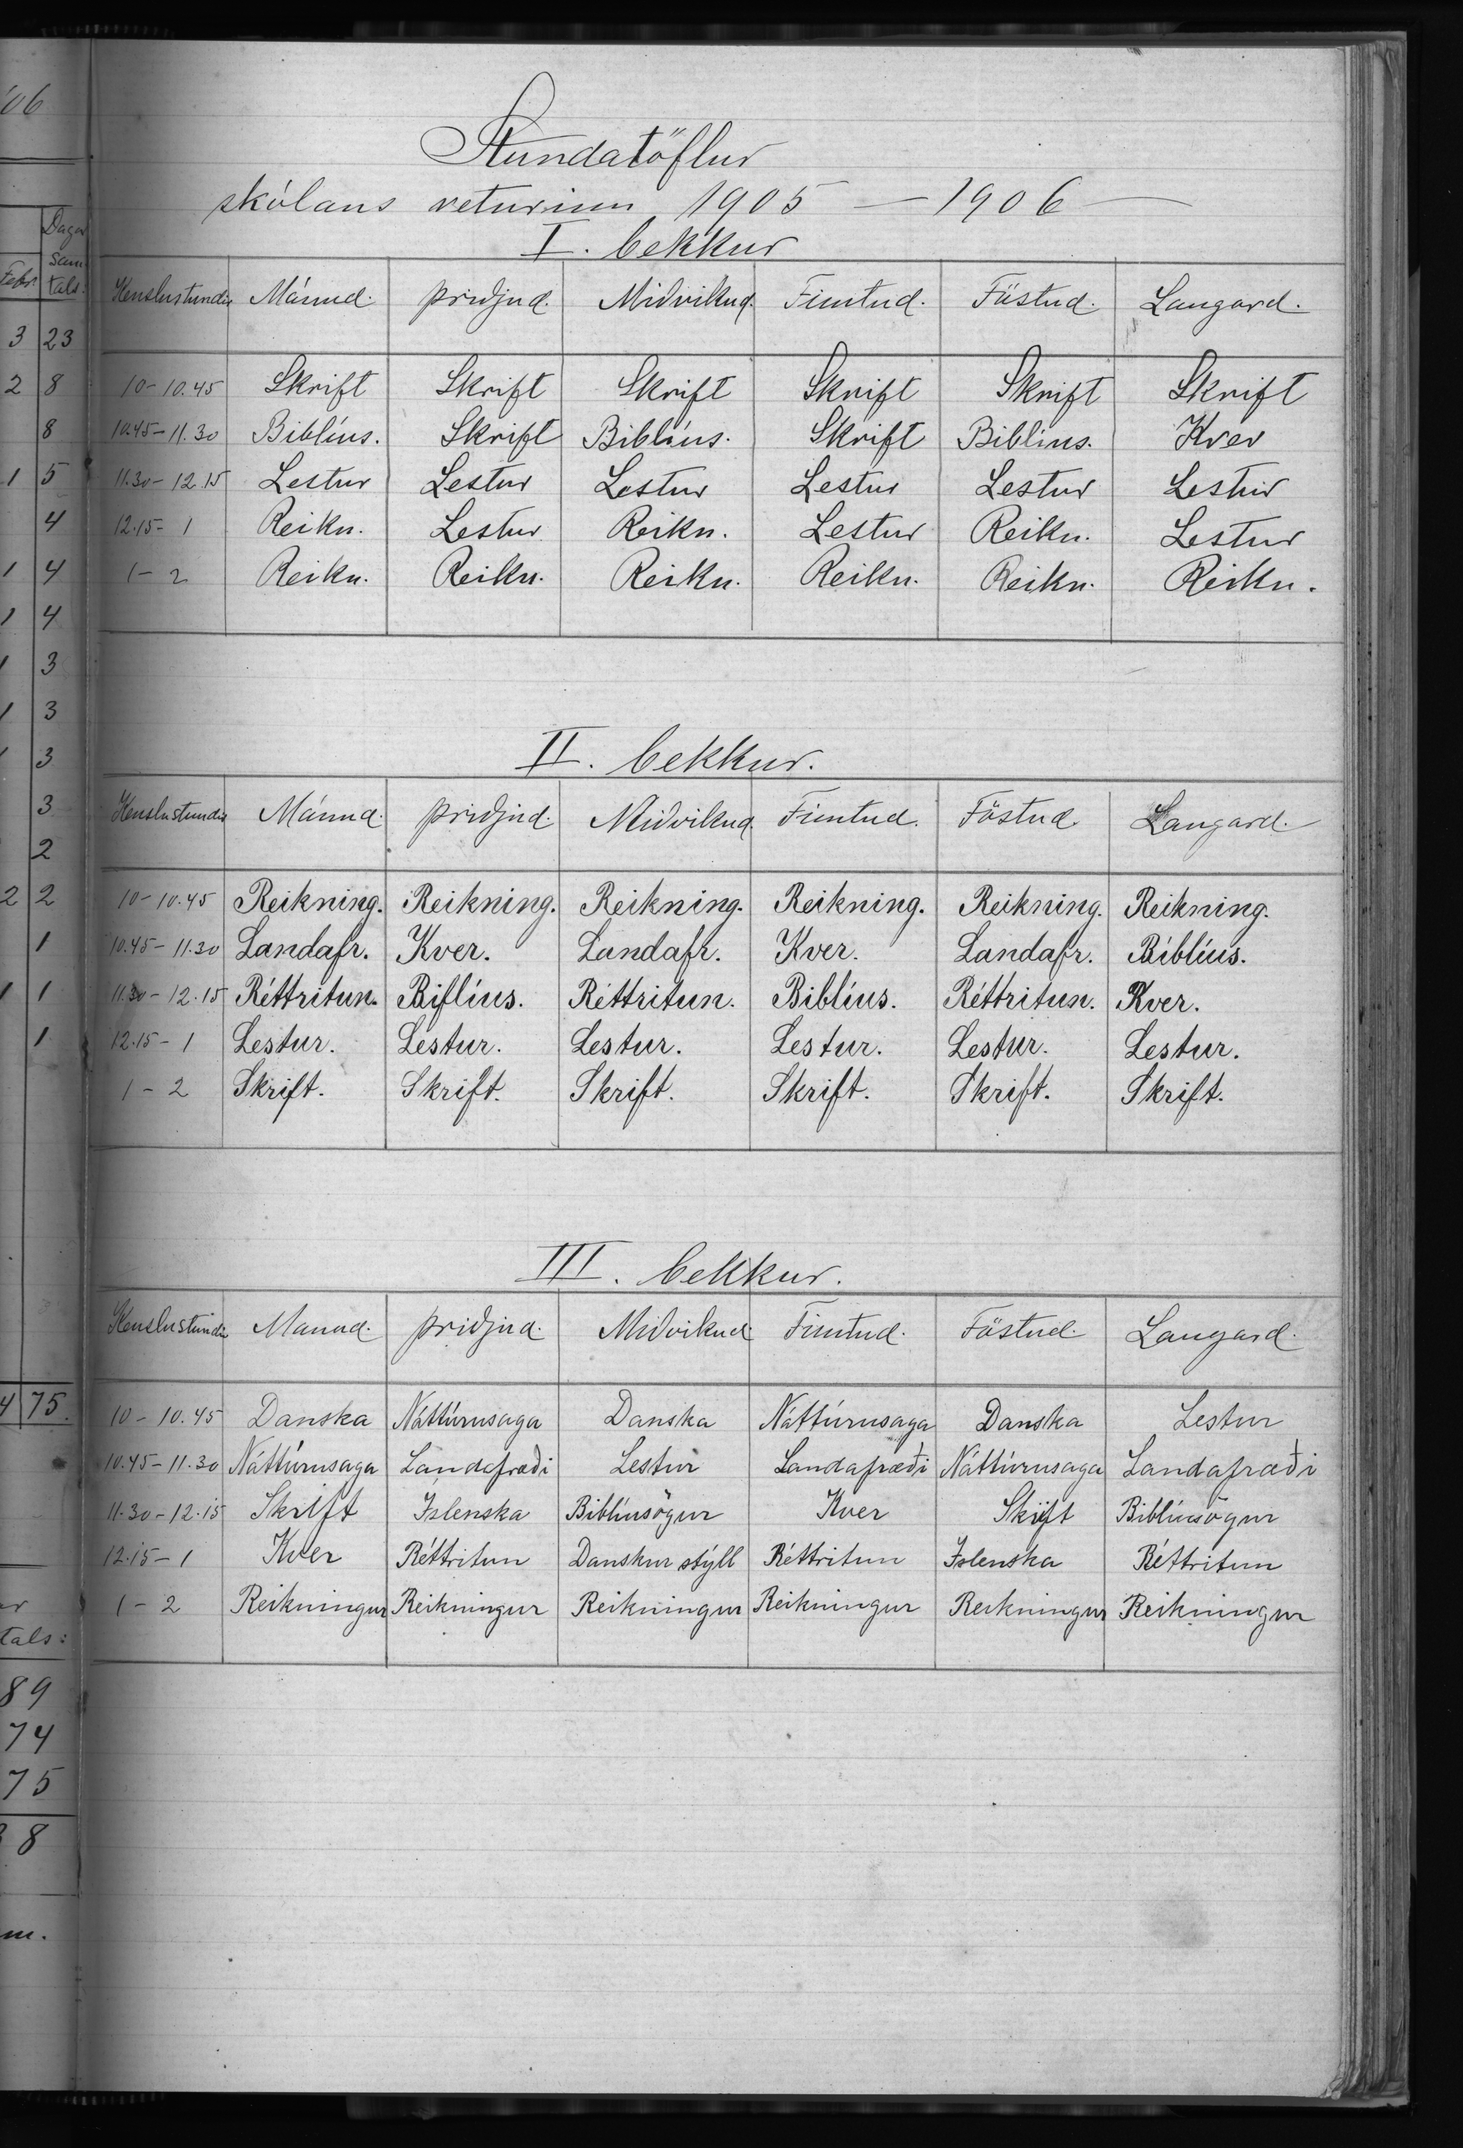 Stundatöflur
skólans veturinn 1905 — 1906 —
I. bekkur
Kenslustundir Mánud. þriðjud. Miðvikud. Fimtud. Föstud. Laugard.
10-10.45 Skrift Skrift Skrift Skrift Skrift Skrift
10.45-11.30 Biblíus. Skrift Biblíus. Skrift Biblíus. Kver
11.30-12.15 Lestur Lestur Lestur Lestur Lestur Lestur
12.15-1 Reikn. Lestur Reikn. Lestur Reikn. Lestur
1-2 Reikn. Reikn. Reikn. Reikn. Reikn. Reikn.
II. bekkur.
Kenslustundir Mánud. þriðjud. Miðvikud. Fimtud. Föstud. Laugard.
10-10.45 Reikning. Reikning. Reikning. Reikning. Reikning. Reikning.
10.45-11.30 Landafr. Kver. Landafr. Kver. Landafr. Biblíus.
11.30-12.15 Réttritun. Biflíus. Réttritun. Biblíus. Réttritun. Kver.
12.15-1 Lestur. Lestur. Lestur. Lestur. Lestur. Lestur.
1-2 Skrift. Skrift. Skrift. Skrift. Skrift. Skrift.
III. bekkur.
Kenslustundir Manud. þriðjud. Miðvikud Fimtud. Föstud. Laugard.
10-10.45 Danska Náttúrusaga Danska Náttúrusaga Danska Lestur
10.45-11.30 Náttúrusaga Landafræði Lestur Landafræði Náttúrusaga Landafræði
11.30-12.15 Skrift Islenska Biblíusögur Kver Skrift Biblíusögur
12.15-1 Kver Réttritun Danskur stýll Réttritun Islenska Réttritun
1-2 Reikningur Reikningur Reikningur Reikningur Reikningur Reikningur
'06
Febr. Dagar samtals:
3 23
2 8
8
1 5
4
1 4
1 4
1 3
1 3
1 3
3
2
2 2
1
1 1
1
4 75.
tals:
89
74
75
38
m.